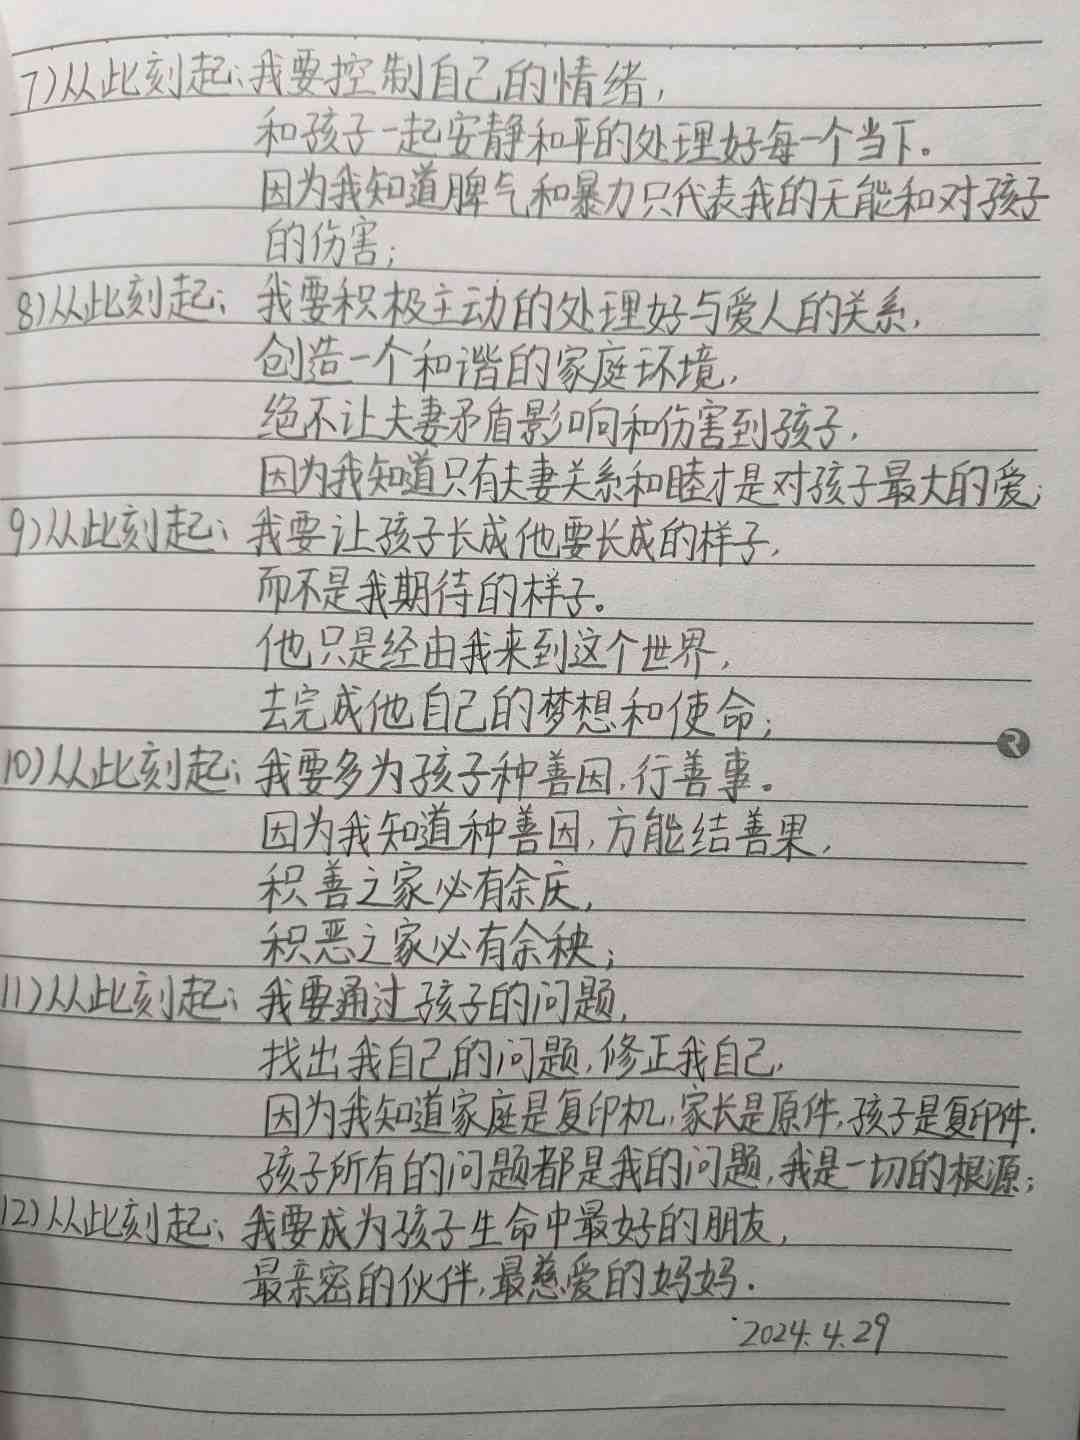 7)从此刻起:我要控制自己的情绪,
和孩子一起安静和平的处理好每一个当下。
因为我知道脾气和暴力只代表我的无能和对孩子
的伤害;
8)从此刻起:我要积极主动的处理好与爱人的关系,
创造一个和谐的家庭环境,
绝不让夫妻矛盾影响和伤害到孩子,
因为我知道只有夫妻关系和睦才是对孩子最大的爱;
9)从此刻起:我要让孩子长成他要长成的样子,
而不是我期待的样子。
他只是经由我来到这个世界,
去完成他自己的梦想和使命;
10)从此刻起:我要多为孩子种善因,行善事。
因为我知道种善因,方能结善果,
积善之家必有余庆,
积恶之家必有余秧;
11)从此刻起:我要通过孩子的问题,
找出我自己的问题,修正我自己,
因为我知道家庭是复印机,家长是原件,孩子是复印件.
孩子所有的问题都是我的问题,我是一切的根源;
12)从此刻起:我要成为孩子生命中最好的朋友,
最亲密的伙伴,最慈爱的妈妈.
2024.4.29